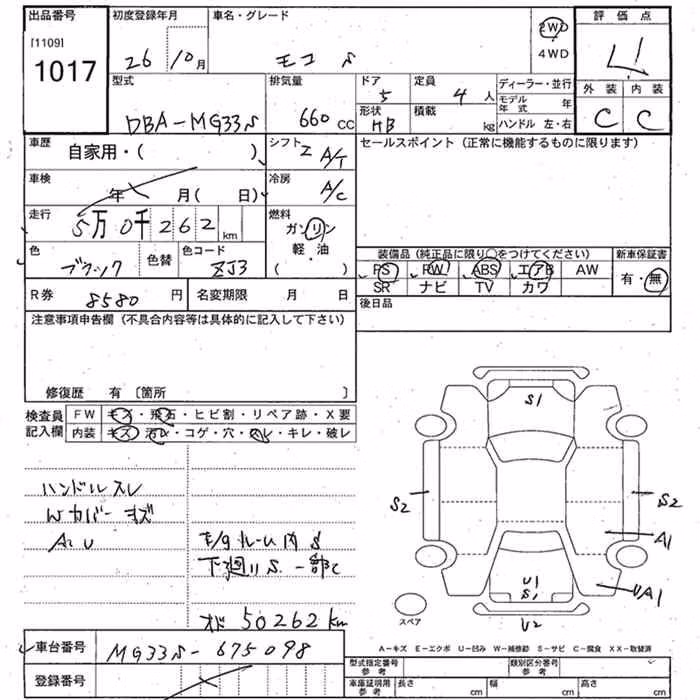 出品番号 初度登録年月 車名・グレード 評価点
[1109] 1017 26 10月 モコ S 2WD 4WD 4
型式 排気量 ドア 定員 ディーラー・並行 外装 内装
DBA-MG33S 660 CC 5 4人 モデル年式 年 C C
形状 HB 積載 kg ハンドル 左・右
車歴 自家用・( ) シフト A/T セールスポイント (正常に機能するものに限ります)
車検 年 月( 日) 冷房 A/C
走行 5万0千262km 燃料 ガソリン 軽・油 ( )
色 ブラック 色替 色コード ZJ3
装備品 (純正品に限り○をつけてください) 新車保証書
PS PW ABS エアB AW 有・無
SR ナビ TV カワ
R券 8580円 名変期限 月 日 後日品
注意事項申告欄 (不具合内容等は具体的に記入して下さい)
修復歴 有 〔箇所 〕
検査員記入欄 FW キズ・飛石・ヒビ割・リペア跡・X要
内装 キズ・汚レ・コゲ・穴・スレ・キレ・破レ
ハンドルスレ
Wカバーキズ
A2 U
E/gルーム内S
下廻りS 一部C
オド 50262km
S1
S2 S2
A1
U1
S1 UA1
U2
スペア
A-キズ E-エクボ U-凹み W-補修跡 S-サビ C-腐食 XX-取替済
車台番号 MG33S-675098
登録番号
型式指定番号 参考 類別区分番号 参考
車庫証明用 参考 長さ cm 幅 cm 高さ cm